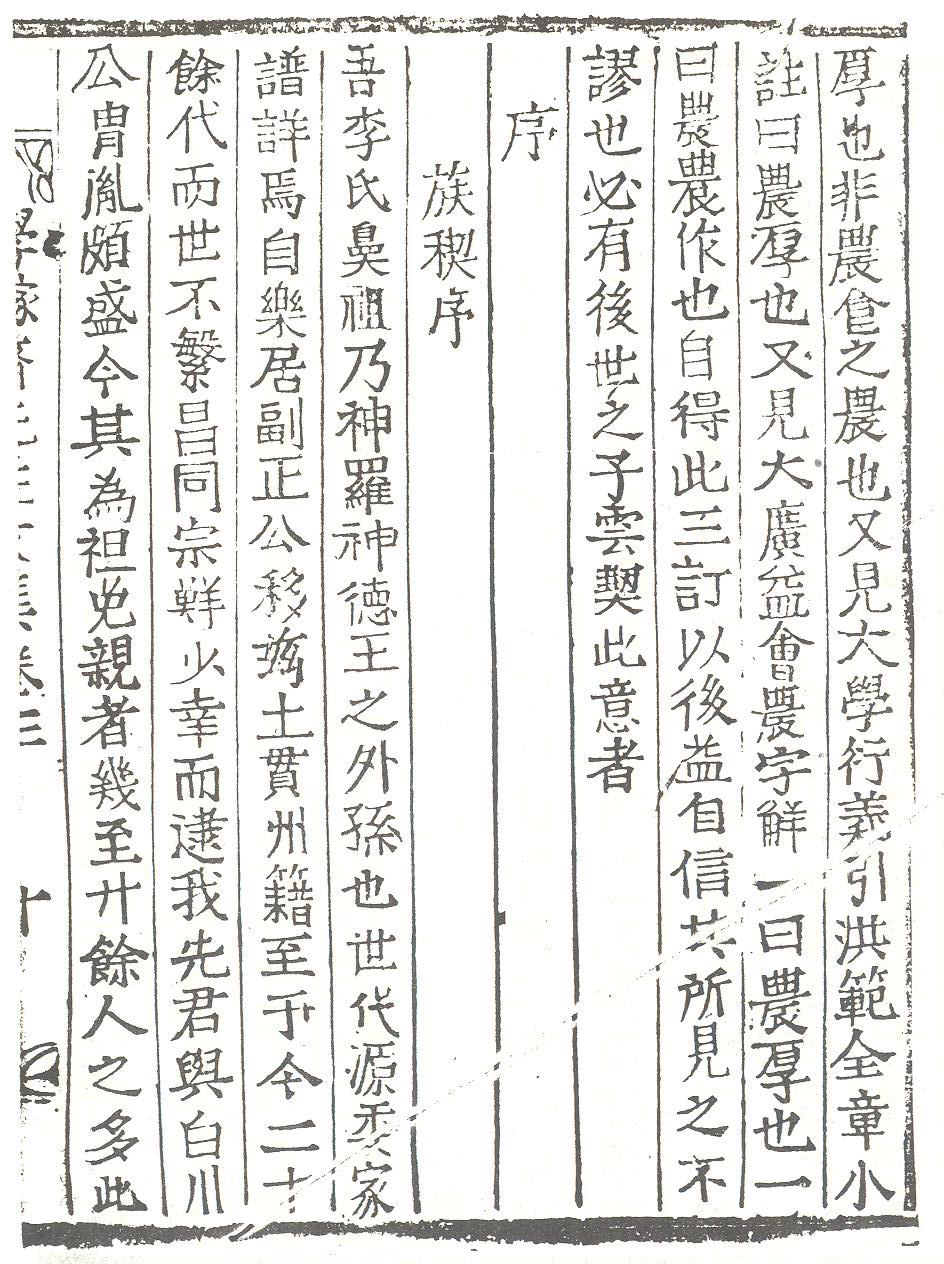 厚也非農食之農也又見大學衍義引洪範全章小
註曰農厚也又見大廣益會農字解一曰農厚也一
曰農農作也自得此三訂以後益自信其所見之不
謬也必有後世之子雲契此意者
序
族稧序
吾李氏鼻祖乃神羅神德王之外孫也世代源委家
譜詳焉自樂居副正公移玆土貫州籍至于今二十
餘代而世不繁昌同宗鮮少幸而逮我先君與白川
公胄胤頗盛今其為袒免親者幾至廾餘人之多此
卷三
十